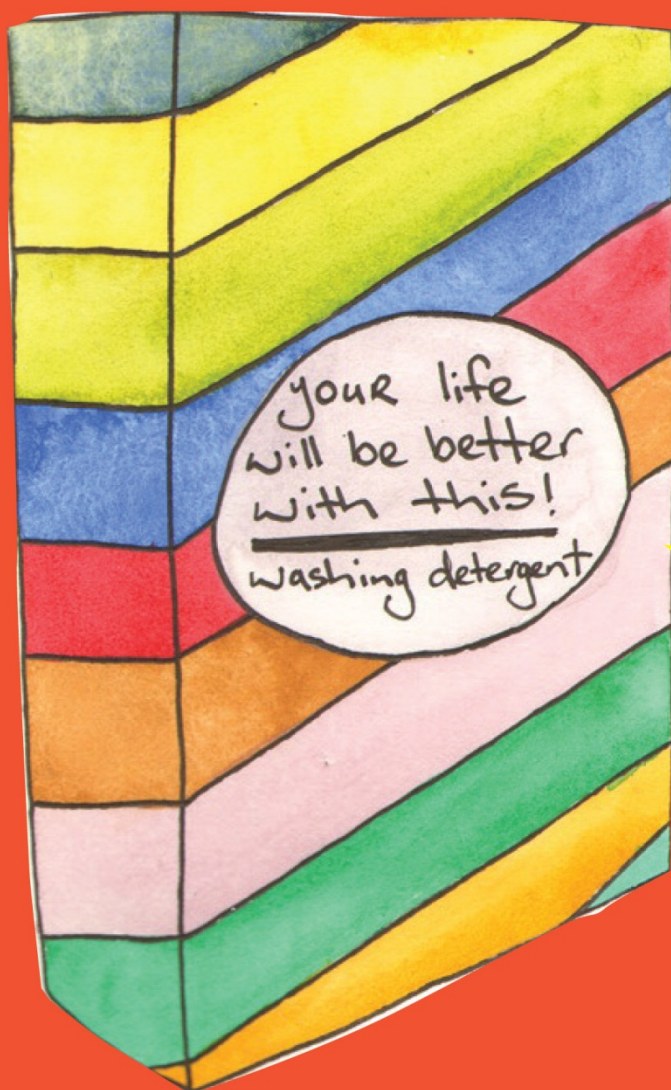 your life
will be better
with this!
washing detergent